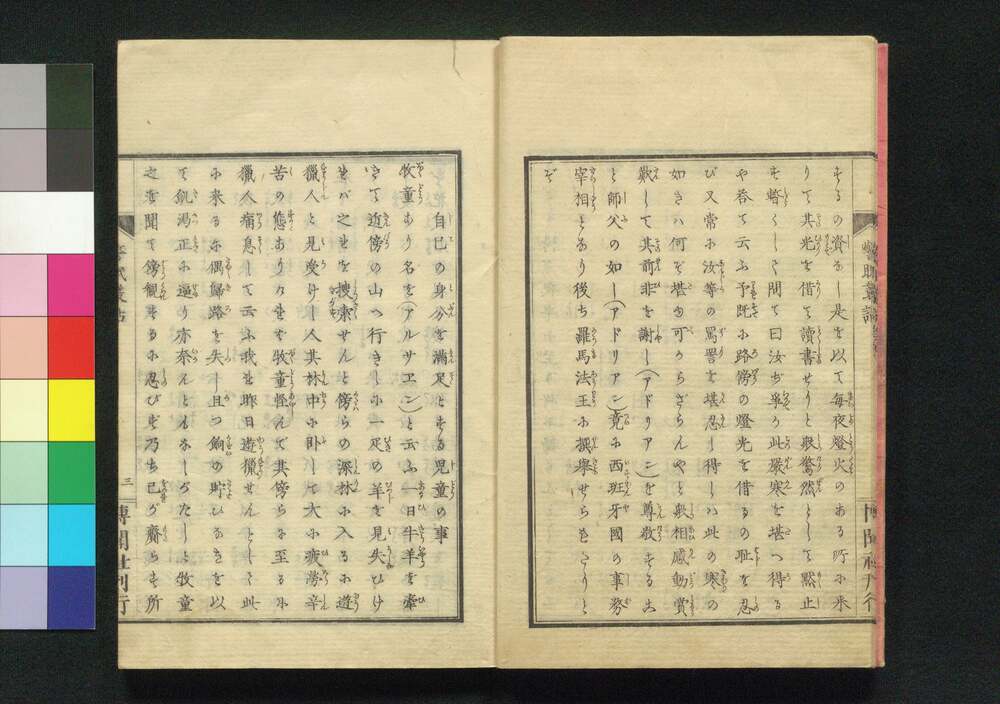 するの資なし是を以て毎夜燈火のある所に来
りて其光を借て讀書せりと衆驚然として黙止
を暫くして問て曰汝ぢ争か此嚴寒を堪へ得る
や答て云ふ予既に路傍の燈光を借るの耻を忍
び又常に汝等の罵詈を堪忍し得しハ此の寒の
如きハ何ぞ堪ゆ可からざらんやと衆相感動賞
歎して其前非を謝し(アドリアン)を尊敬する亠
と師父の如し(アドリアン)竟に西班牙國の事務
宰相となり後ち羅馬法王に撰擧せらるたりと
ぞ
自己の身分を滿足とする児童の事
牧童あり名を(アルサエン)と云ふ一日牛羊を牽
いて近傍の山へ行きしに一疋の羊を見失ひけ
れバ之れを捜索せんと傍らの深林に入るに遊
獵人と見受けし人其林中に臥して大に疲労辛
苦の態ありけれバ牧童怪んで其傍らに至るに
獵人痛息して云ふ我れ昨日遊獵せんとして此
に来るに偶歸路を失し且つ餉の貯ひなきを以
て飢渇正に逼り亦奈んともなしがたしと牧童
之を聞て傍観するに忍びず乃ち己が齎らす所
三
博聞社刊行